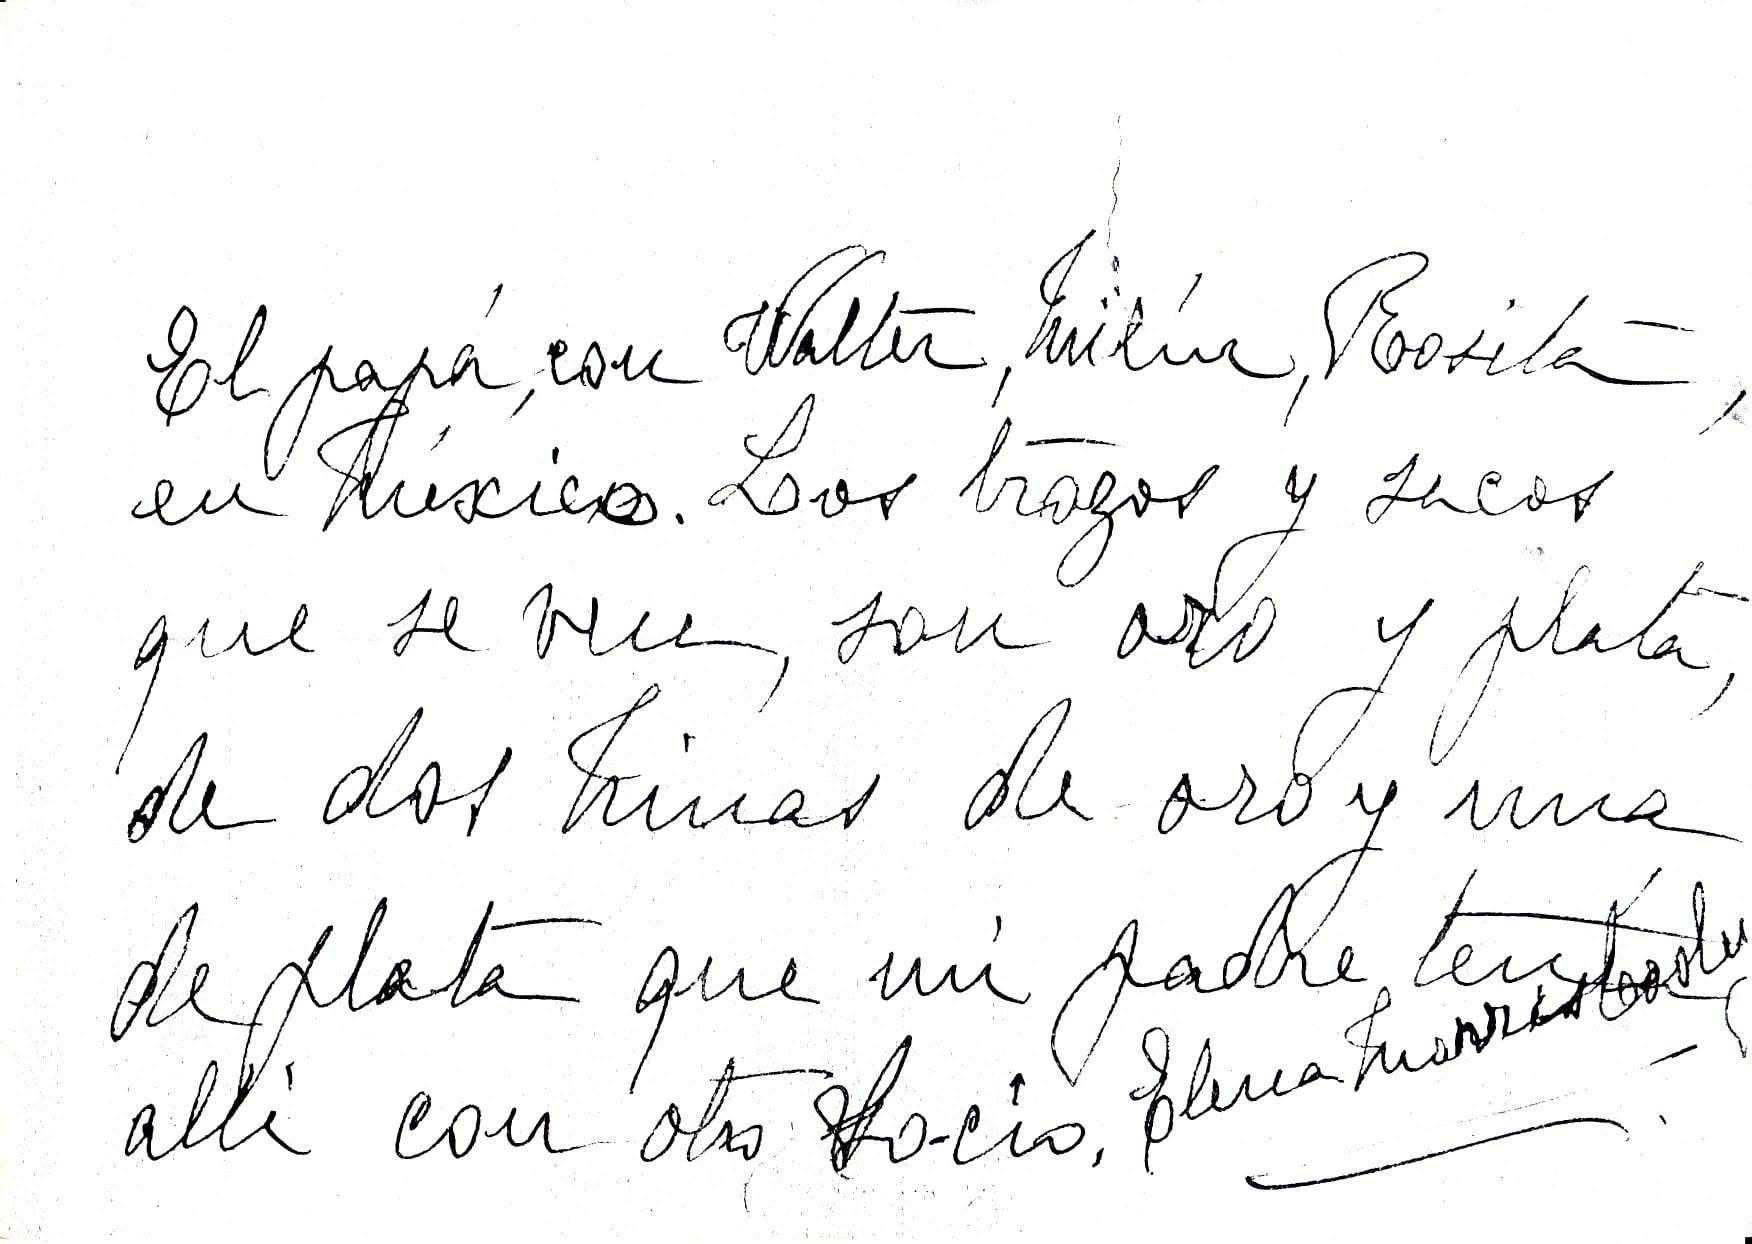 El papá, con Walter, Milín, Rosita,
en México. Los trozos y sacos
que se ven, son oro y plata,
de dos Minas de oro y una
de plata que mi padre tenía
allí con otro Socio. Elena Morris